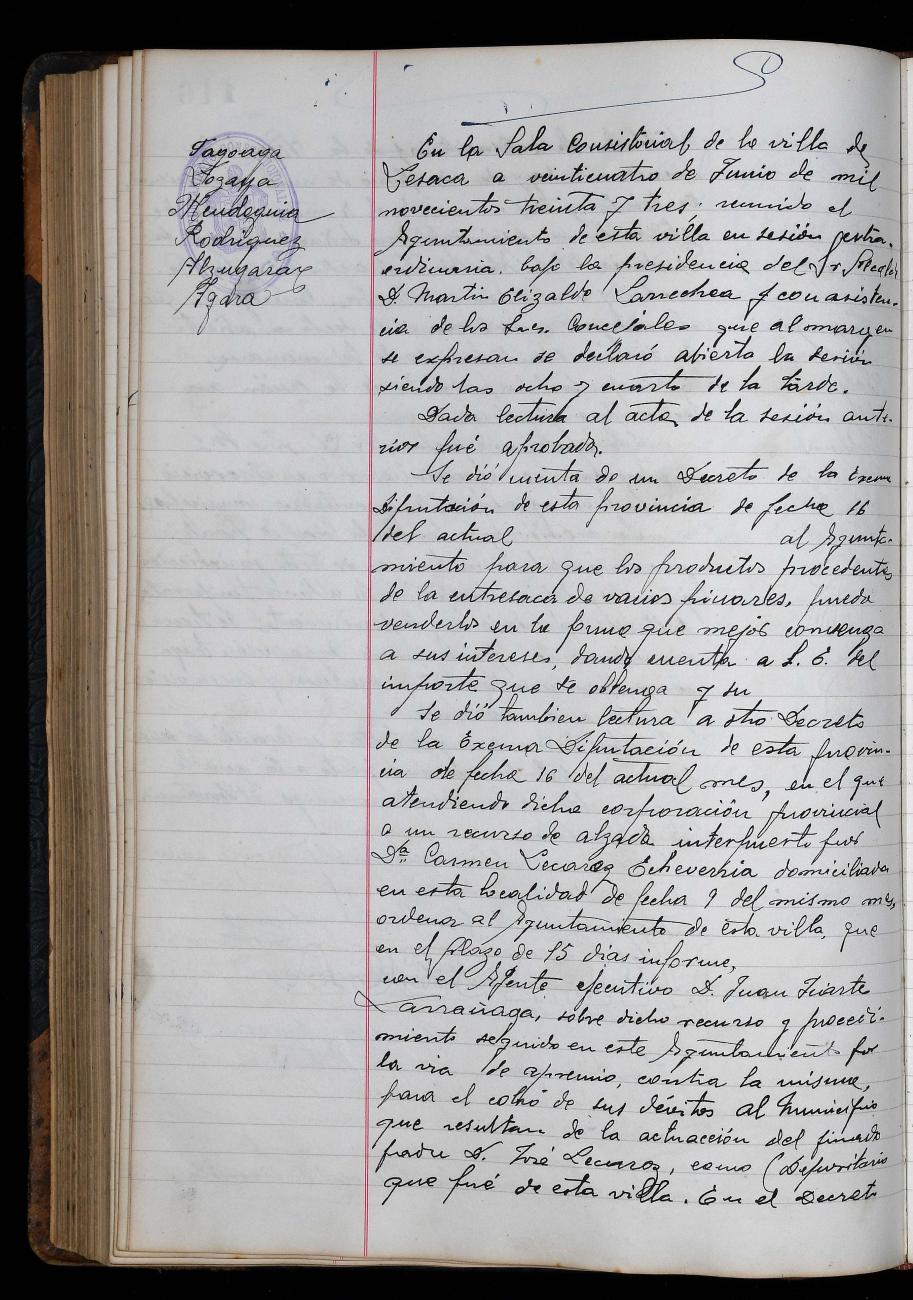 Tagoaga
Lozaya
Mendeguia
Rodriguez
Alzugaray
Agara
En la Sala Consistorial de la villa de
Lesaca a veinticuatro de Junio de mil
novecientos treinta y tres; reunido el
Ayuntamiento de esta villa en sesión extra-
ordinaria, bajo la presidencia del Sr Alcalde
D. Martin Elizalde Larrechea y con asisten-
cia de los Sres. Concejales que al margen
se expresan se declaró abierta la sesión
siendo las ocho y cuarto de la tarde.
Dada lectura al acta de la sesión ante-
rior fué aprobada.
Se dió cuenta de un Decreto de la Excma
Diputación de esta provincia de fecha 16
del actual al Ayunta-
miento para que los productos procedentes
de la entresaca de varios pinares, pueda
venderlos en la forma que mejor convenga
a sus intereses, dando cuenta a S. E. del
importe que se obtenga y su
Se dió tambien lectura a otro Decreto
de la Excma Diputación de esta provin-
cia de fecha 16 del actual mes, en el que
atendiendo dicha corporación provincial
a un recurso de alzada interpuesto por
Dª. Carmen Lecaroz Echeverria domiciliada
en esta localidad de fecha 9 del mismo mes,
ordena al Ayuntamiento de esta villa, que
en el plazo de 15 dias informe,
con el Agente ejecutivo D. Juan Iriarte
Larrainaga, sobre dicho recurso y procedi-
miento seguido en este Ayuntamiento por
la via de apremio, contra la misma,
para el cobro de sus débitos al Municipio
que resultan de la actuacción del finado
padre D. José Lecaroz, como Depositario
que fué de esta villa. En el Decreto